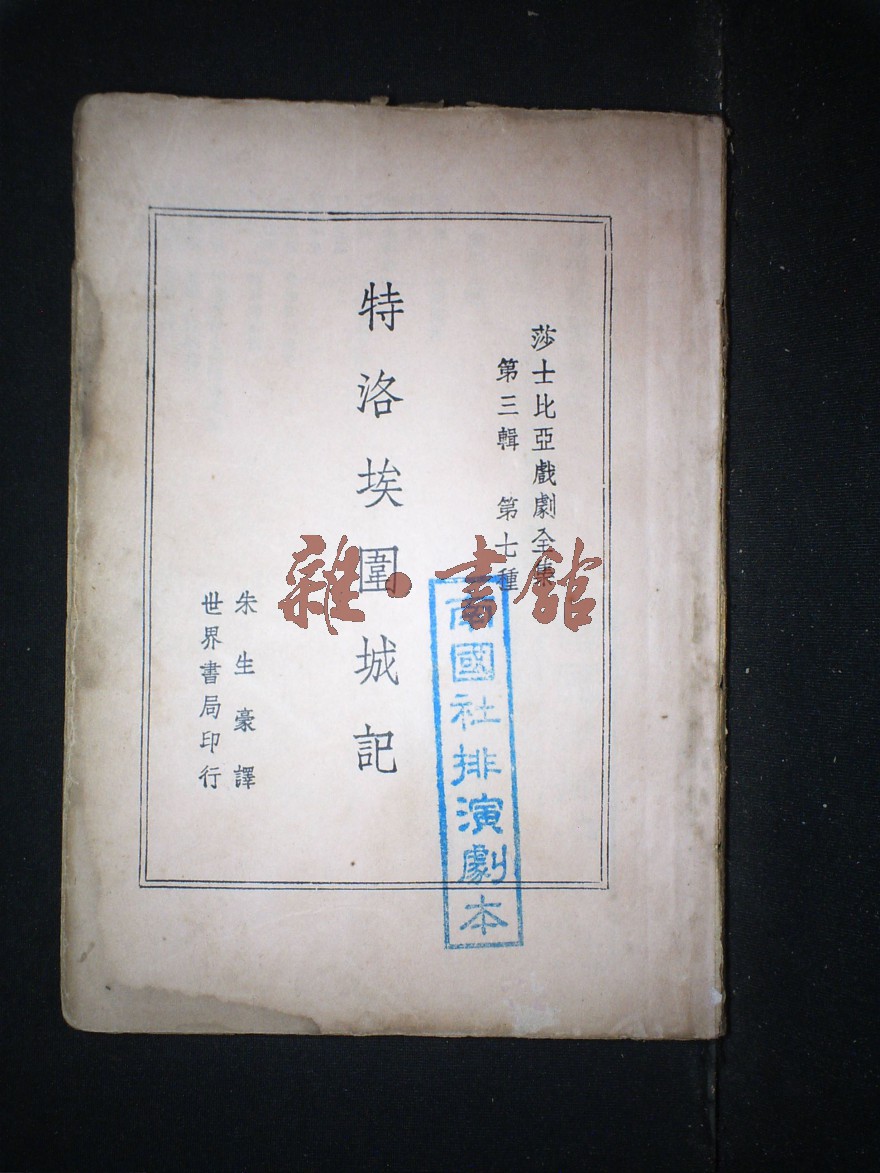 莎士比亞戲劇全集
第三輯 第七種
特洛埃圍城記
朱生豪譯
世界書局印行
南國社排演劇本
雜·書館